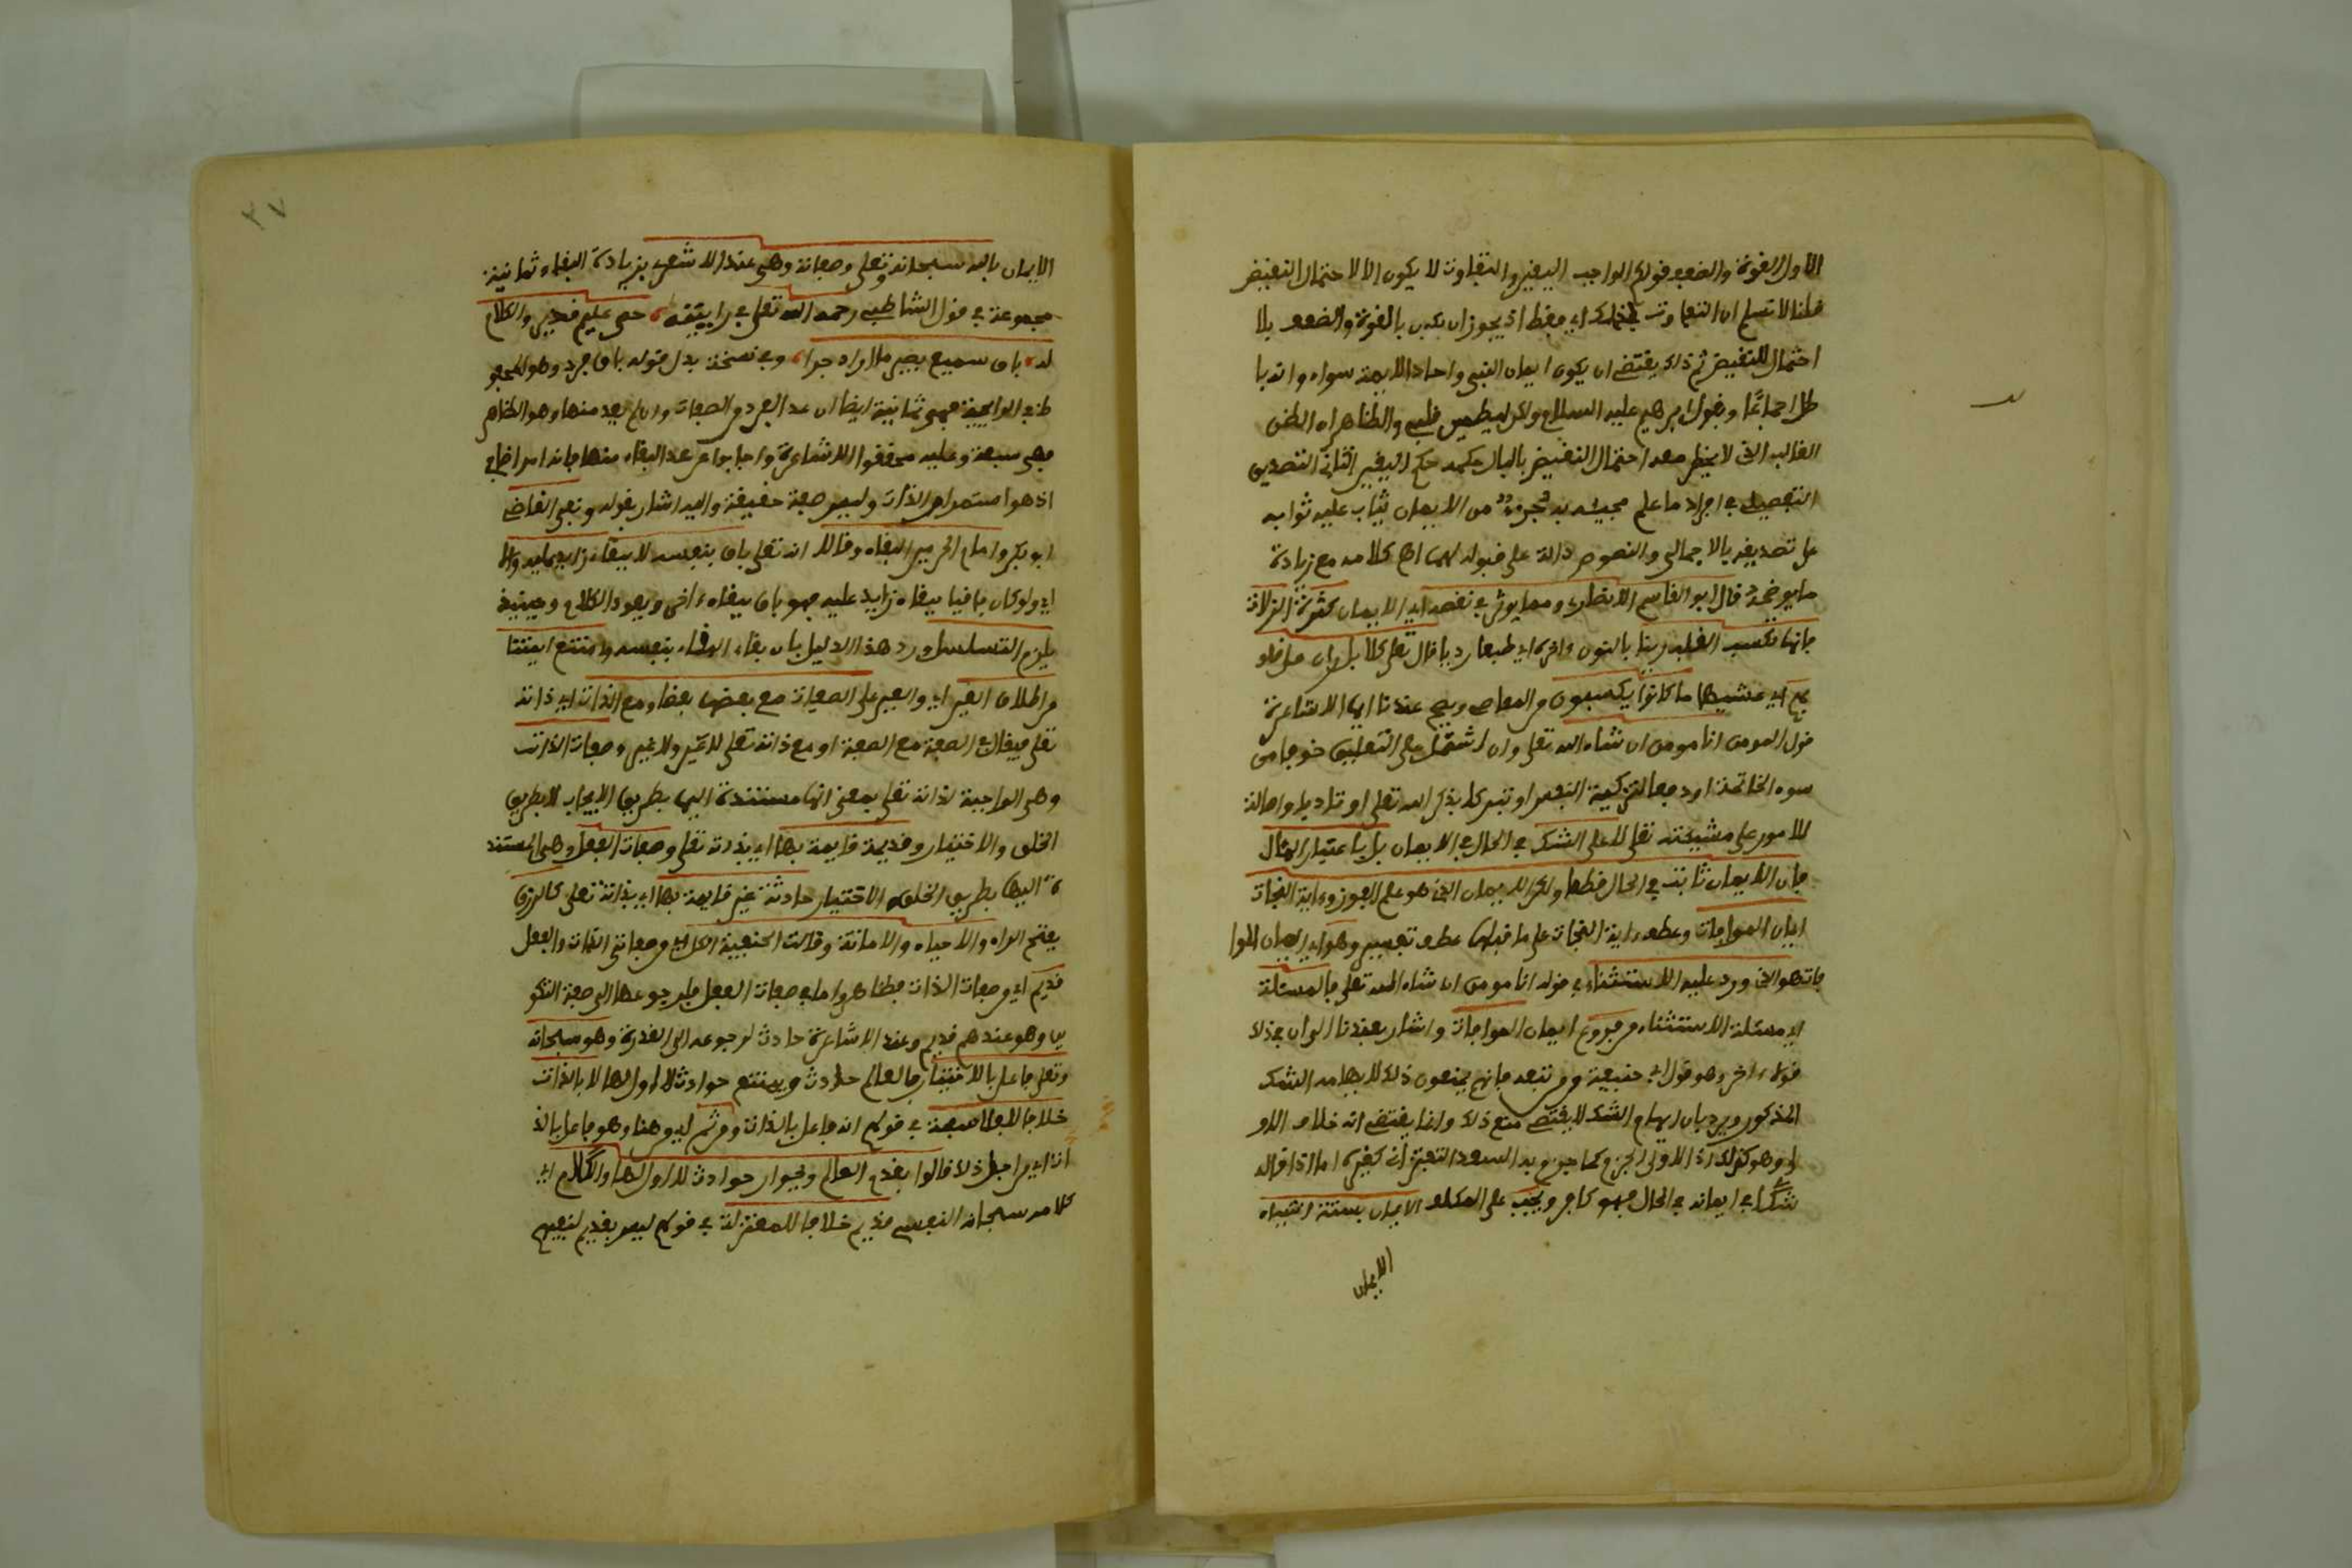 الاول القوة والضعف قولكم الواجب اليقين والتفاوت لا يكون الا لاحتمال النقيض
قلنا لا نسلم ان التفاوت لذلك اي فقط اذ يجوز ان يكون بالقوة والضعف بلا
احتمال للنقيض ثم ذلك يقتضي ان يكون ايمان النبي واحاد الامة سواء وانه با
طل اجماعا وبقول ابرهيم عليه السلام ولكن ليطمين قلبي والظاهر ان الظن
الغالب الذي لا يخطر معه احتمال النقيض بالبال حكمه حكم اليقين الثاني التصديق
التفصيلي في افراد ما علم مجيئه به جزء من الايمان يثاب عليه ثوابه
على تصديقه بالاجمالي والنصوص دالة على قبوله لهما اه كلامه مع زيادة
ما يوضحه قال ابو القاسم الانصاري ومما يوثر في نقصه اي الايمان كثرة الزلات
فانها تكسب القلب رينا بالنون واخره اي طبعا رديا قال تعلى كلا بل ران على قلو
بهم اي غشيها ما كانوا يكسبون من المعاصي ويصح عندنا ايها الاشاعرة
قول المومن انا مومن ان شاء الله تعلى وان اشتمل على التعليق خوفا من
سوء الخاتمة او دفعا لتزكية النفس او تبركا بذكر الله تعلى او تاديبا واحالة
للامور على مشيئته تعلى لا على الشك في الحال في الايمان بل باعتبار المئال
فان الايمان ثابت في الحال قطعا ولكن الايمان الذي هو علم الفوز وءاية النجات
ايمان الموافات وعطف ءاية النجات على ما قبلها عطف تفسير وهو اي ايمان الموا
فات هو الذي ورد عليه الاستثناء في قوله انا مومن ان شاء الله تعلى فالمسئلة
اي مسئلة الاستثناء من فروع ايمان الموافات واشار بعندنا الى ان في ذلك
قولا ءاخر وهو قول ابي حنيفة ومن تبعه فانهم يمنعون ذلك لايهامه الشك
المذكور ويرد بان ايهام الشك لا يقتضي منع ذلك وانما يقتضي انه خلاف الاو
لى وهو كذلك اذ الاولى الجزم كما جزم به السعد التفتزاني كغيره اما اذا قاله
شكا في ايمانه في الحال فهو كافر ويجب على المكلف الايمان بستة اشياء
الايمان
٣٧
الايمان بالله سبحانه وتعلى وصفاته وهي عند الاشعري بزيادة البقاء ثمانية
مجموعة في قول الشاطبي رحمه الله تعلى في راييته حي عليم قدير والكلام
له باق سميع بصير ما اراد جرا وفي نسخة بدل قوله باق فرد وهو المحفو
ظ في الرايية فهي ثمانية ايضا ان عد الفرد من الصفات وان لم يعد منها وهو الظاهر
فهي سبعة وعليه محققوا الاشاعرة واجابوا عن عد البقاء منها بانه امر اضافي
اذ هو استمرار الذات وليس صفة حقيقة واليه اشار بقوله ونفى القاضي
ابو بكر وامام الحرمين البقاء وقالا انه تعلى باق بنفسه لا ببقاء زايد عليه والا
اي ولو كان باقيا ببقاء زايد عليه فهو باق ببقاء ءاخر ويعود الكلام وحينيذ
يلزم التسلسل ورد هذا الدليل بان بقاء البقاء بنفسه وامتنع ايمتنا
من اطلاق الغير اي والعين على الصفات مع بعضها بعضا ومع الذات اي ذاته
تعلى فيقال في الصفة مع الصفة او مع ذاته تعلى لا عين ولا غير وصفات الذات
وهي الواجبة لذاته تعلى بمعنى انها مستندة اليها بطريق الايجاب لا بطريق
الخلق والاختيار قديمة قايمة بها اي بذاته تعلى وصفات الفعل وهي المستند
ة اليها بطريق الخلق والاختيار حادثة غير قايمة بها اي بذاته تعلى كالرزق
بفتح الراء والاحياء والاماتة وقالت الحنفية الكل اي من صفاتي الذات والفعل
قديم اي من صفات الذات فظاهر واما في صفات الفعل فلرجوعها الى صفة التكو
ين وهو عندهم قديم وعند الاشاعرة حادث لرجوعه الى القدرة وهو سبحانه
وتعلى فاعل بالاختيار فالعالم حادث ويمتنع حوادث لا اول لها لا بالذات
خلافا للفلاسفة في قولهم انه فاعل بالذات ومن ثم اي ومن هنا وهو فاعل بالذ
ات اي من اجل ذلك قالوا بقدم العالم وبجواز حوادث لا اول لها والكلام اي
كلامه سبحانه النفسي قديم خلافا للمعتزلة في قولهم ليس بقديم لنفيهم